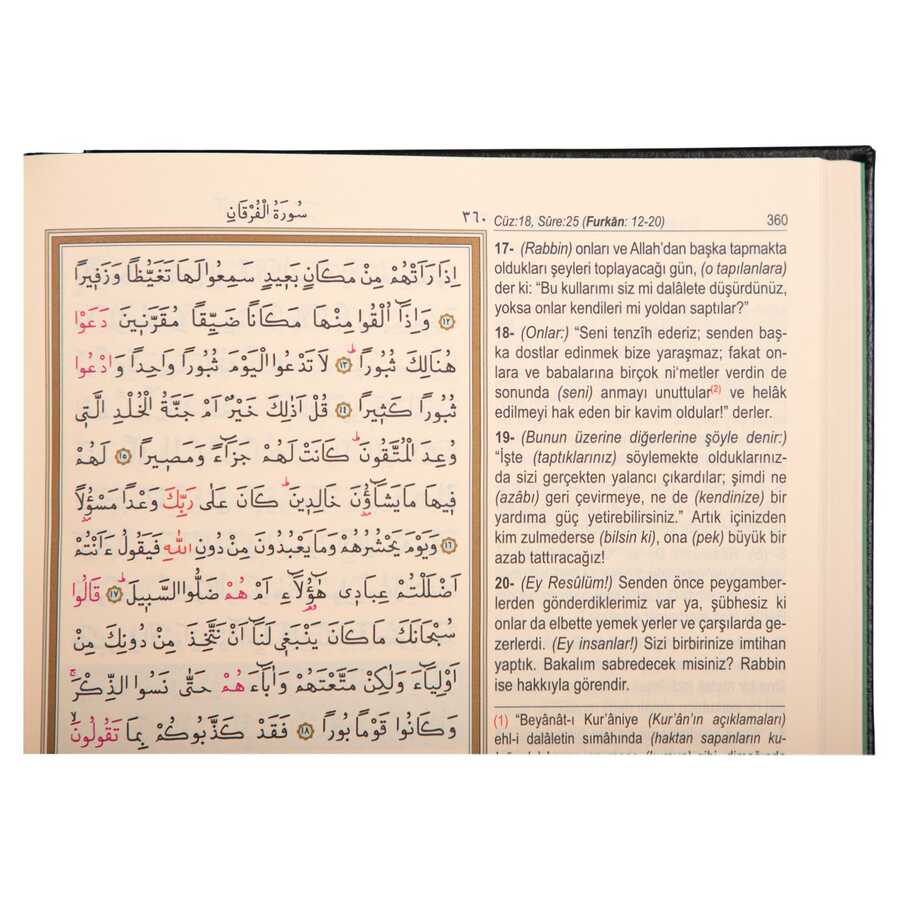 سُورَةُ الْفُرْقَانِ
٣٦٠
اِذَا رَاَتْهُمْ مِنْ مَكَانٍ بَع۪يدٍ سَمِعُوا لَهَا تَغَيُّظًا وَزَف۪يرًا
﴿١٢﴾ وَاِذَٓا اُلْقُوا مِنْهَا مَكَانًا ضَيِّقًا مُقَرَّن۪ينَ دَعَوْا
هُنَالِكَ ثُبُورًاۜ ﴿١٣﴾ لَا تَدْعُوا الْيَوْمَ ثُبُورًا وَاحِدًا وَادْعُوا
ثُبُورًا كَث۪يرًا ﴿١٤﴾ قُلْ اَذٰلِكَ خَيْرٌ اَمْ جَنَّةُ الْخُلْدِ الَّت۪ي
وُعِدَ الْمُتَّقُونَۜ كَانَتْ لَهُمْ جَزَٓاءً وَمَص۪يرًا ﴿١٥﴾ لَهُمْ
ف۪يهَا مَا يَشَٓاؤُ۫نَ خَالِد۪ينَۜ كَانَ عَلٰى رَبِّكَ وَعْدًا مَسْؤُ۫لًا
﴿١٦﴾ وَيَوْمَ يَحْشُرُهُمْ وَمَا يَعْبُدُونَ مِنْ دُونِ اللّٰهِ فَيَقُولُ ءَاَنْتُمْ
اَضْلَلْتُمْ عِبَاد۪ي هٰٓؤُ۬لَٓاءِ اَمْ هُمْ ضَلُّوا السَّب۪يلَۜ ﴿١٧﴾ قَالُوا
سُبْحَانَكَ مَا كَانَ يَنْبَغ۪ي لَنَٓا اَنْ نَتَّخِذَ مِنْ دُونِكَ مِنْ
اَوْلِيَٓاءَ وَلٰكِنْ مَتَّعْتَهُمْ وَاٰبَٓاءَهُمْ حَتّٰى نَسُوا الذِّكْرَۚ
وَكَانُوا قَوْمًا بُورًا ﴿١٨﴾ فَقَدْ كَذَّبُوكُمْ بِمَا تَقُولُونَۙ
Cüz:18, Sûre:25 (Furkān: 12-20) 360
17- (Rabbin) onları ve Allah’dan başka tapmakta
oldukları şeyleri toplayacağı gün, (o tapılanlara)
der ki: “Bu kullarımı siz mi dalâlete düşürdünüz,
yoksa onlar kendileri mi yoldan saptılar?”
18- (Onlar:) “Seni tenzîh ederiz; senden baş-
ka dostlar edinmek bize yaraşmaz; fakat on-
lara ve babalarına birçok ni‘metler verdin de
sonunda (seni) anmayı unuttular(2) ve helâk
edilmeyi hak eden bir kavim oldular!” derler.
19- (Bunun üzerine diğerlerine şöyle denir:)
“İşte (taptıklarınız) söylemekte olduklarınız-
da sizi gerçekten yalancı çıkardılar; şimdi ne
(azâbı) geri çevirmeye, ne de (kendinize) bir
yardıma güç yetirebilirsiniz.” Artık içinizden
kim zulmederse (bilsin ki), ona (pek) büyük bir
azab tattıracağız!
20- (Ey Resûlüm!) Senden önce peygamber-
lerden gönderdiklerimiz var ya, şübhesiz ki
onlar da elbette yemek yerler ve çarşılarda ge-
zerlerdi. (Ey insanlar!) Sizi birbirinize imtihan
yaptık. Bakalım sabredecek misiniz? Rabbin
ise hakkıyla görendir.
(1) “Beyânât-ı Kur’âniye (Kur’ân’ın açıklamaları)
ehl-i dalâletin sımâhında (haktan sapanların ku-